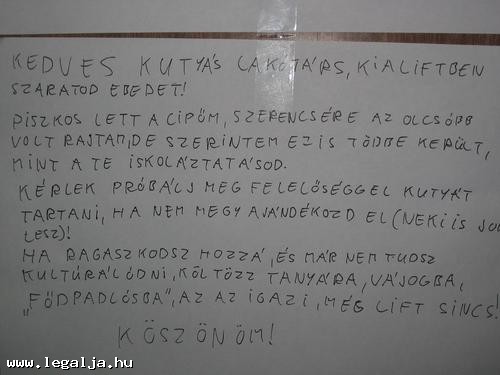 KEDVES KUTYÁS LAKÓTÁRS, KI A LIFTBEN
SZARATOD EBEDET!
PISZKOS LETT A CIPŐM, SZERENCSÉRE AZ OLCSÓBB
VOLT RAJTAM, DE SZERINTEM EZ IS TÖBBE KERÜLT,
MINT A TE ISKOLÁZTATÁSOD.
KÉRLEK PRÓBÁLJ MEG FELELŐSÉGGEL KUTYÁT
TARTANI, HA NEM MEGY AJÁNDÉKOZD EL (NEKI IS JOBB
LESZ)!
HA RAGASZKODSZ HOZZÁ, ÉS MÁR NEM TUDSZ
KULTÚRÁLÓDNI, KÖLTÖZZ TANYÁRA, VÁJOGBA,
„FÖDPADLÓSBA", AZ AZ IGAZI, MÉG LIFT SINCS!
KÖSZÖNÖM!
www.legalja.hu